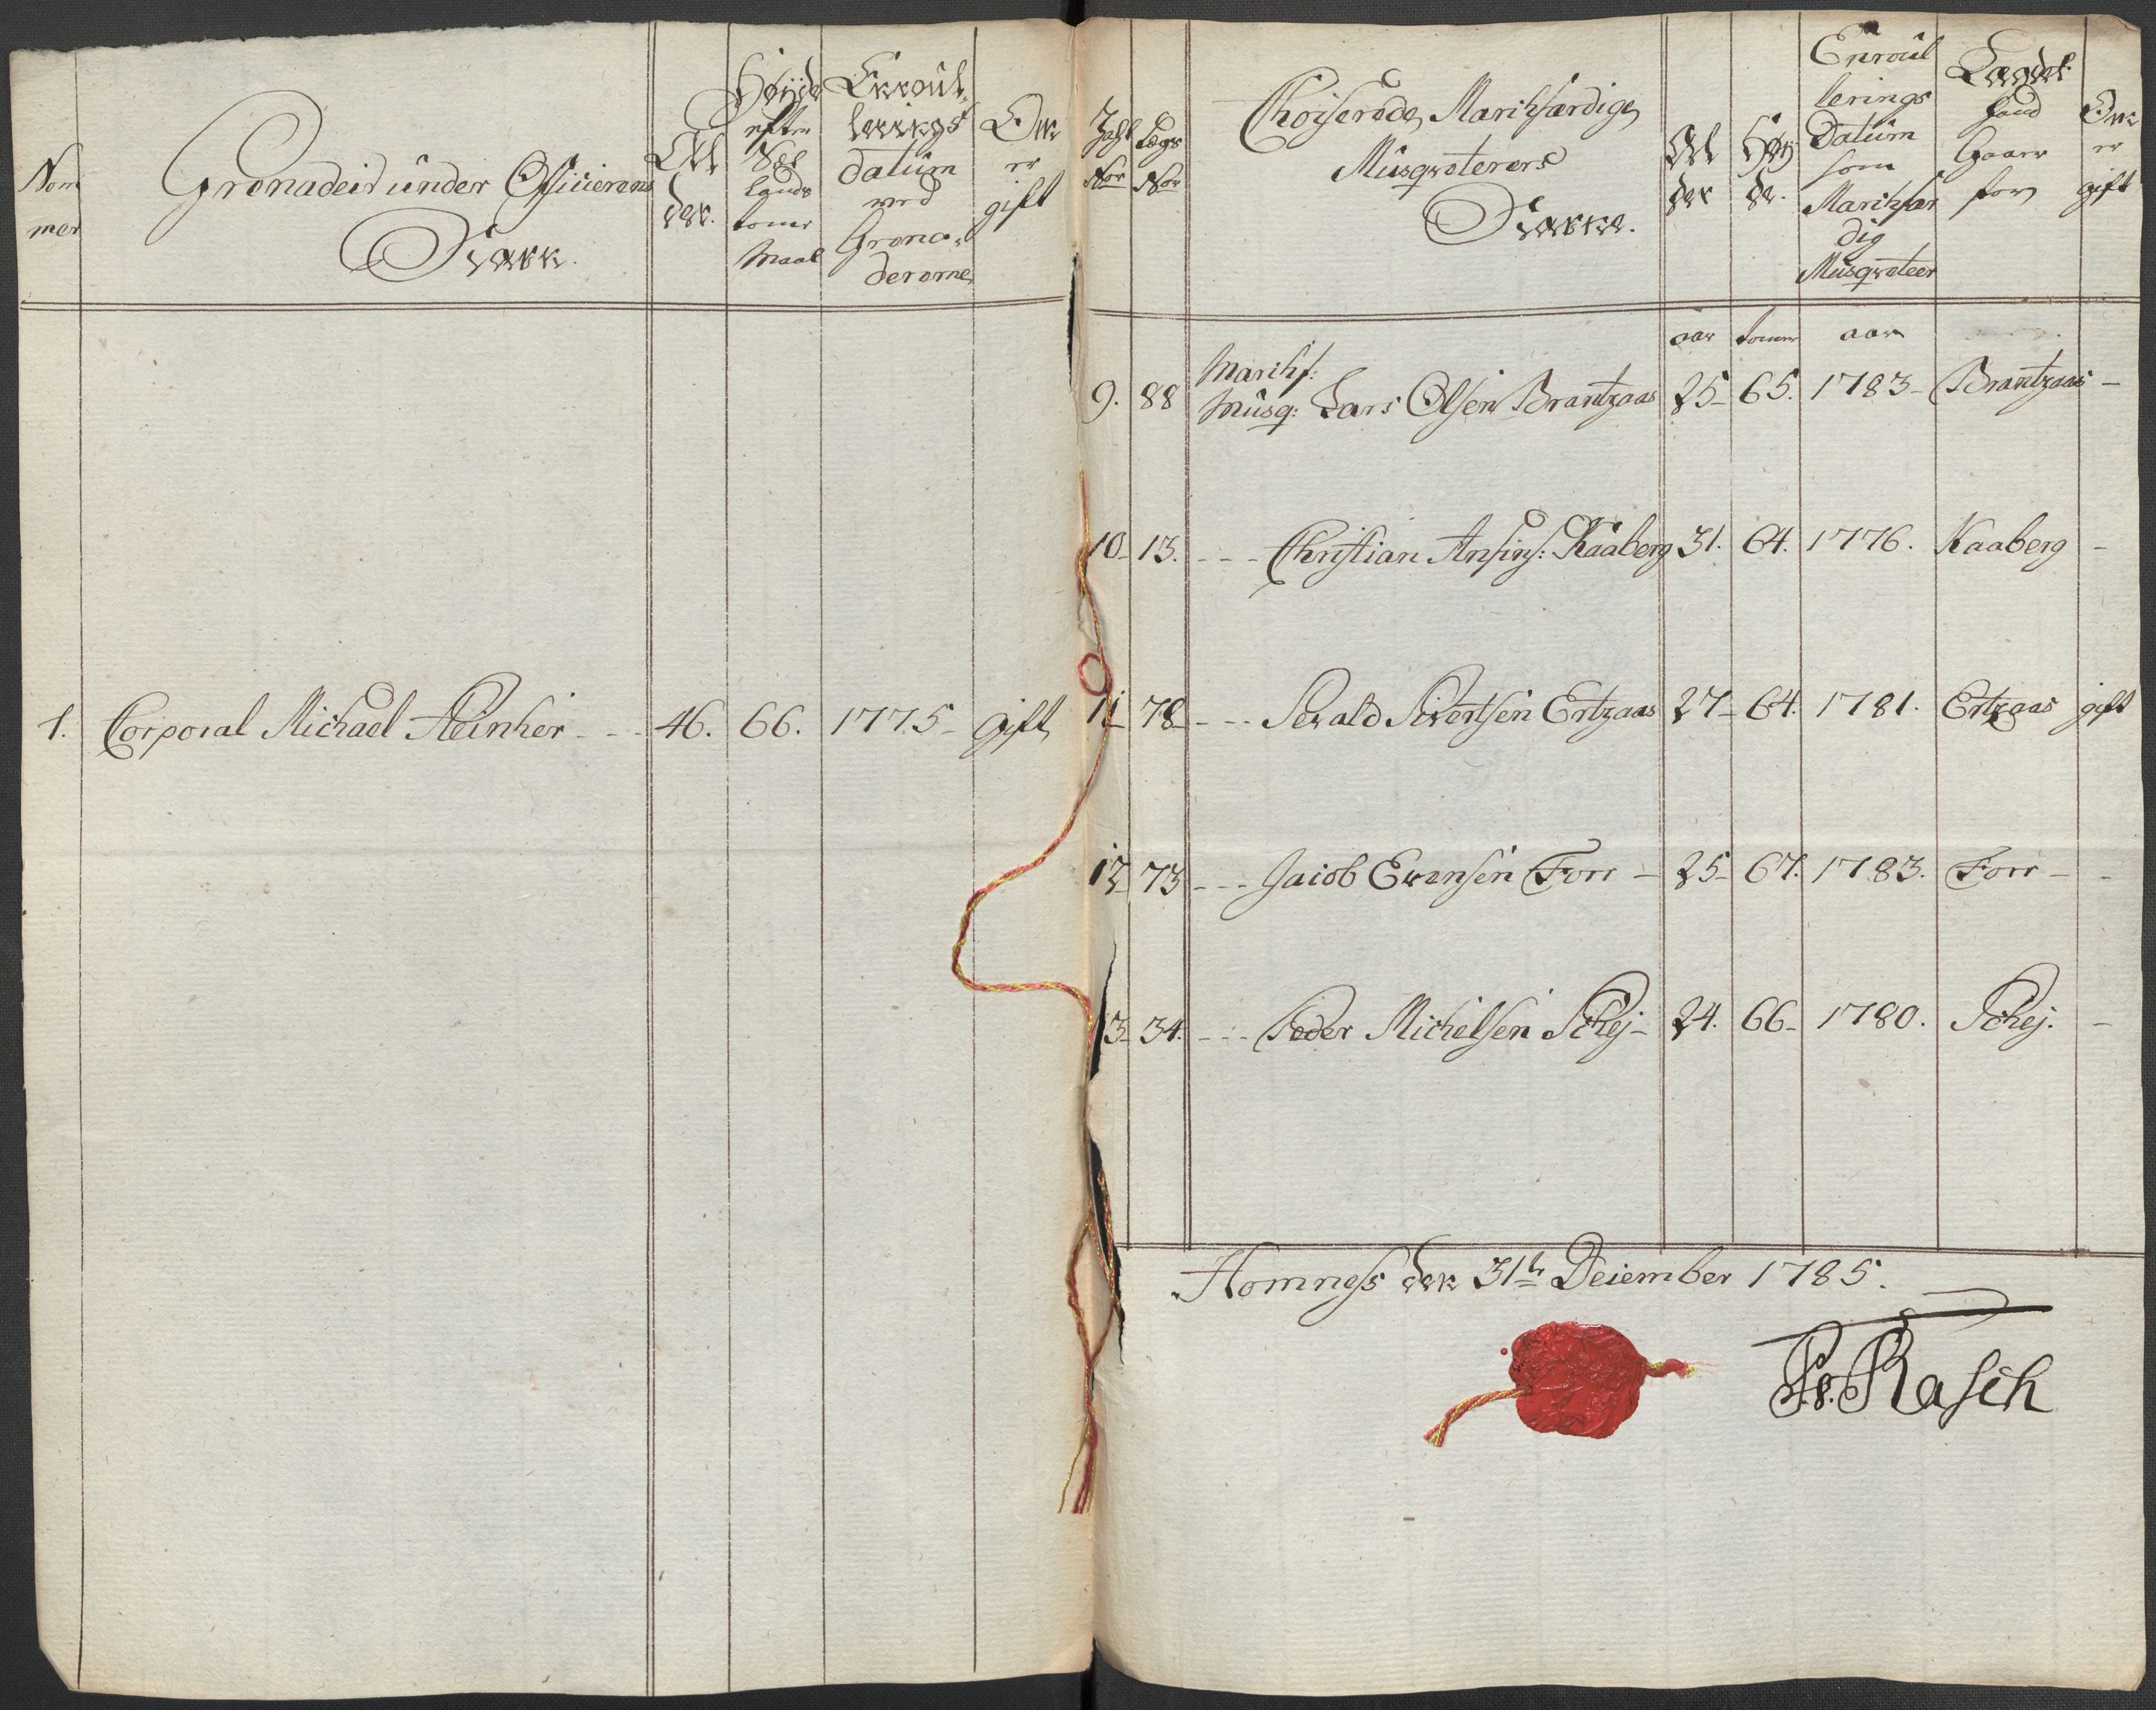 Nom
mer
Grenadeir under Officierens
Nafn.
Al
der.
Høyde
efter
Sæl
lands
tomr
Maal
Enroul
lerings
datum
ved
Grena-
dererne
Om
er
gift
1. Corporal Michael Steinker - - - 46. 66. 1775 - gift
No
Lægs
No
Choiserede, Marchfærdige,
Musqveterers
Nafne.
Al
der
Høy
de.
Enroul
lerings
Datum
som
Marchfær
dig
Musqveteer
Landet
hand
Gaaer
for
Om
er
gift
aar tomr aar
Marchf:
9. 88 Musq: Lars Olsen Brantzaas 25- 65. 1783- Brantzaas -
10- 13. - - - Christian Ansins: Kaaberg 31. 64. 1776. Kaaberg -
11- 78- - - - Sewald Siwertsen Ertzaas 27- 64. 1781. Ertzaas gift
12- 73 - - - Jacob Ewensen Forr - 25- 67. 1783. Forr - -
13- 34. - - - Peder Michelsen Schej - 24. 66- 1780. Schej. -
Homness den 31te December 1785.
Rasch